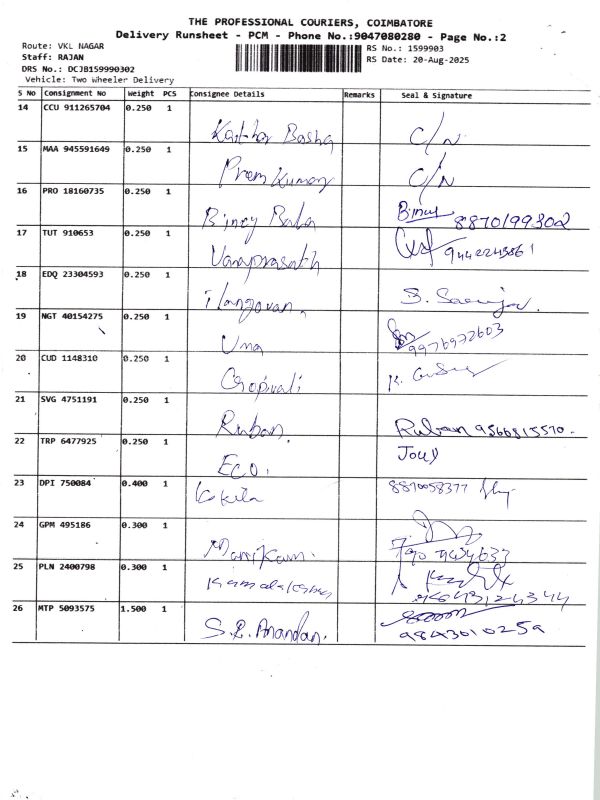 THE PROFESSIONAL COURIERS, COIMBATORE
Delivery Runsheet - PCM - Phone No.:9047080280 - Page No.:2
Route: VKL NAGAR
RS No.: 1599903
Staff: RAJAN
RS Date: 20-Aug-2025
DRS No.: DCJB159990302
Vehicle: Two Wheeler Delivery
S No Consignment No Weight PCS Consignee Details Remarks Seal & Signature
14 CCU 911265704 0.250 1
Basha C/N
15 MAA 945591649 0.250 1
Prem Kumar C/N
16 PRO 18160735 0.250 1
Bincy Baba Bincy 8870199302
17 TUT 910653 0.250 1
Vanaprasath 9442243861
18 EDQ 23304593 0.250 1
Ilangovan. S.
19 NGT 40154275 0.250 1
Uma 9976972603
20 CUD 1148310 0.250 1
Gopivali K.
21 SVG 4751191 0.250 1
Ruban. Ruban 9566815570.
22 TRP 6477925 0.250 1
Eco.
23 DPI 750084 0.400 1
Kokila 8870058377
24 GPM 495186 0.300 1
Manikam.
25 PLN 2400798 0.300 1
26 MTP 5093575 1.500 1
S.R. Anandan. 9843010259